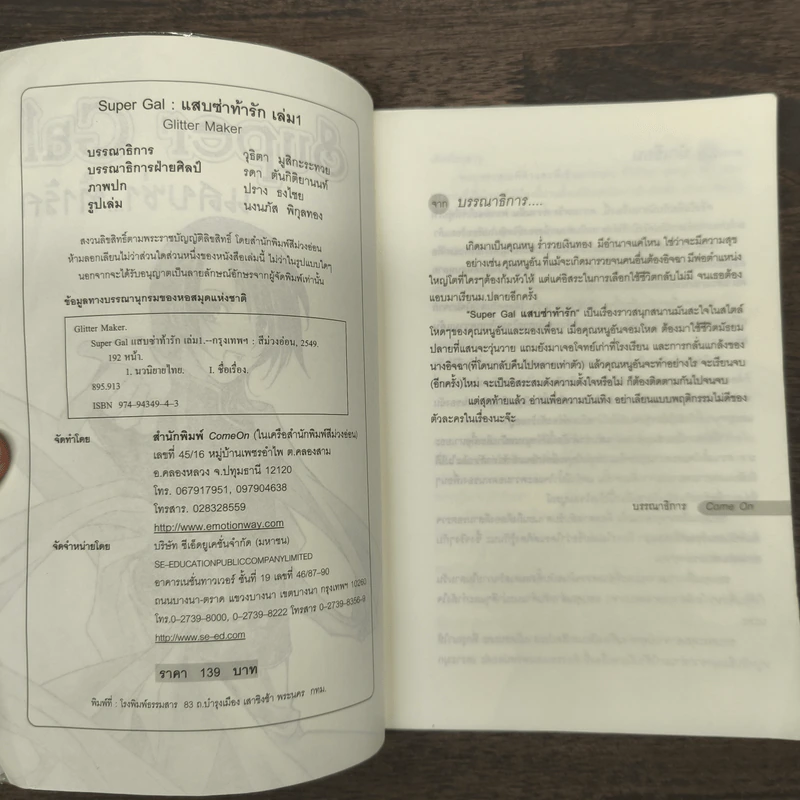 Super Gal : แสบซ่าท้ารัก เล่ม1
Glitter Maker
บรรณาธิการ วุธิตา มูสิกะระทวย
บรรณาธิการฝ่ายศิลป์ รดา ตันกิติยานนท์
ภาพปก ปราง ธงไชย
รูปเล่ม นงนภัส พิกุลทอง
สงวนลิขสิทธิ์ตามพระราชบัญญัติลิขสิทธิ์ โดยสำนักพิมพ์สีม่วงอ่อน
ห้ามลอกเลียนไม่ว่าส่วนใดส่วนหนึ่งของหนังสือเล่มนี้ ไม่ว่าในรูปแบบใดๆ
นอกจากจะได้รับอนุญาตเป็นลายลักษณ์อักษรจากผู้จัดพิมพ์เท่านั้น
ข้อมูลทางบรรณานุกรมของหอสมุดแห่งชาติ
Glitter Maker.
Super Gal แสบซ่าท้ารัก เล่ม1.--กรุงเทพฯ : สีม่วงอ่อน, 2549.
192 หน้า.
1. นวนิยายไทย. I. ชื่อเรื่อง.
895.913
ISBN 974-94349-4-3
จัดทำโดย สำนักพิมพ์ ComeOn (ในเครือสำนักพิมพ์สีม่วงอ่อน)
เลขที่ 45/16 หมู่บ้านเพชรอำไพ ต.คลองสาม
อ.คลองหลวง จ.ปทุมธานี 12120
โทร. 067917951, 097904638
โทรสาร. 028328559
http://www.emotionway.com
จัดจำหน่ายโดย บริษัท ซีเอ็ดยูเคชั่นจำกัด (มหาชน)
SE-EDUCATIONPUBLICCOMPANYLIMITED
อาคารเนชั่นทาวเวอร์ ชั้นที่ 19 เลขที่ 46/87-90
ถนนบางนา-ตราด แขวงบางนา เขตบางนา กรุงเทพฯ 10260
โทร.0-2739-8000, 0-2739-8222 โทรสาร 0-2739-8356-9
http://www.se-ed.com
ราคา 139 บาท
พิมพ์ที่ : โรงพิมพ์ธรรมสาร 83 ถ.บำรุงเมือง เสาชิงช้า พระนคร กทม.
จาก บรรณาธิการ....
เกิดมาเป็นคุณหนู ร่ำรวยเงินทอง มีอำนาจแค่ไหน ใช่ว่าจะมีความสุข
อย่างเช่น คุณหนูอัน ที่แม้จะเกิดมารวยจนคนอื่นต้องอิจฉา มีพ่อตำแหน่ง
ใหญ่โตที่ใครๆต้องก้มหัวให้ แต่แค่อิสระในการเลือกใช้ชีวิตกลับไม่มี จนเธอต้อง
แอบมาเรียนม.ปลายอีกครั้ง
"Super Gal แสบซ่าท้ารัก" เป็นเรื่องราวสนุกสนานมันสะใจในสไตล์
โหดๆของคุณหนูอันและผองเพื่อน เมื่อคุณหนูอันจอมโหด ต้องมาใช้ชีวิตมัธยม
ปลายที่แสนจะวุ่นวาย แถมยังมาเจอโจทย์เก่าที่โรงเรียน และการกลั่นแกล้งของ
นางอิจฉา(ที่โดนกลับคืนไปหลายเท่าตัว) แล้วคุณหนูอันจะทำอย่างไร จะเรียนจบ
(อีกครั้ง)ไหม จะเป็นอิสระสมดังความตั้งใจหรือไม่ ก็ต้องติดตามกันไปจนจบ
แต่สุดท้ายแล้ว อ่านเพื่อความบันเทิง อย่าเลียนแบบพฤติกรรมไม่ดีของ
ตัวละครในเรื่องนะจ๊ะ
บรรณาธิการ Come On